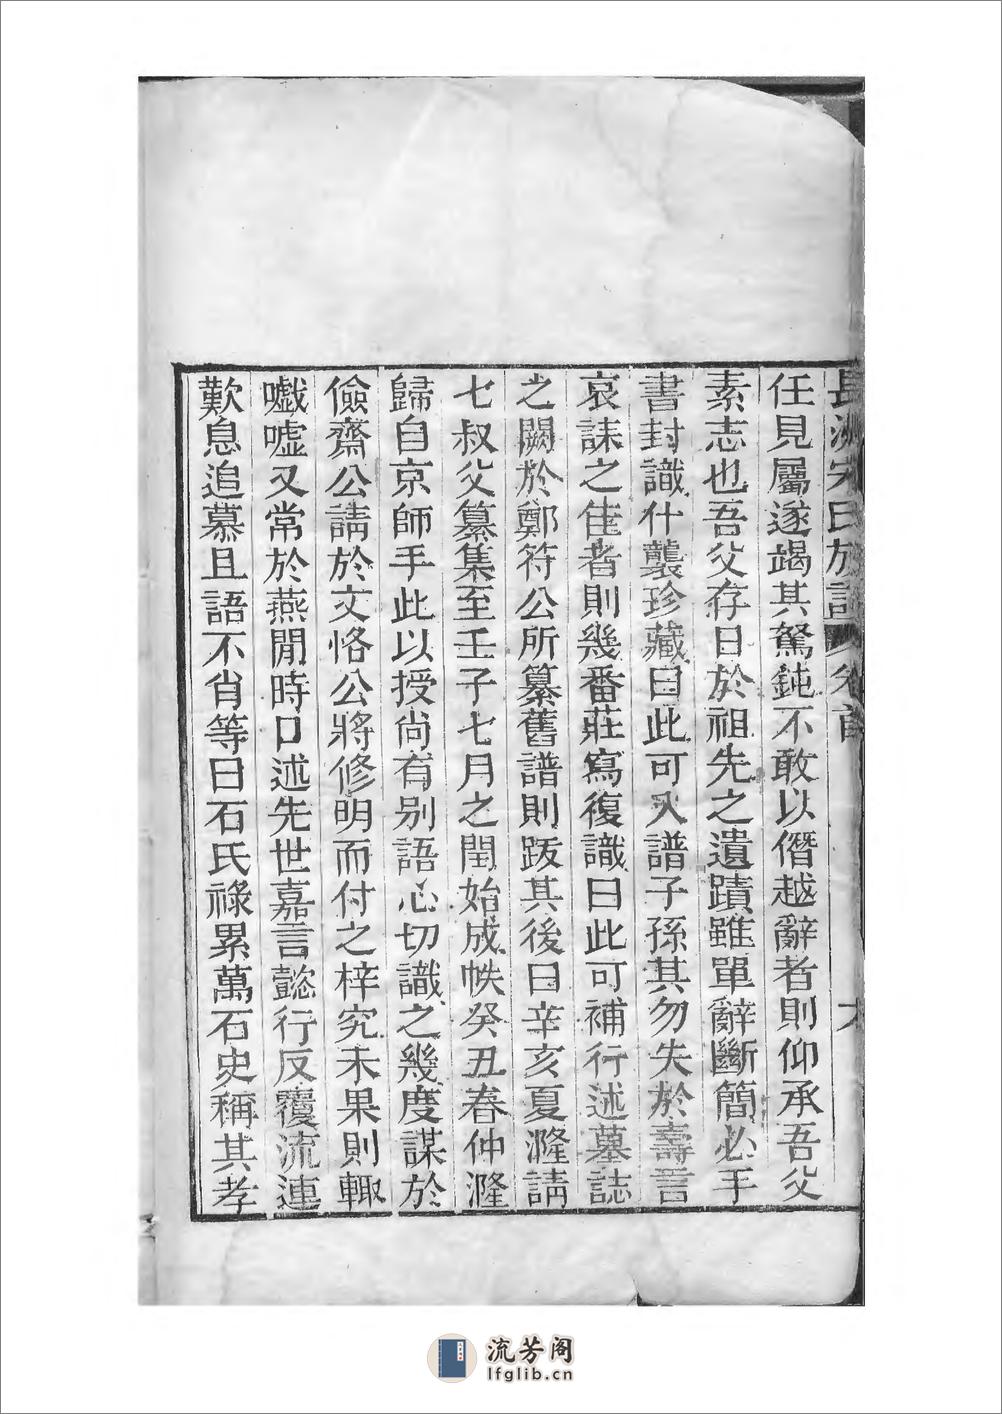 長洲宋氏族譜 卷首
任見屬遂竭其駑鈍不敢以僭越辭者則仰承吾父
素志也吾父存日於祖先之遺蹟雖單辭斷簡必手
書封識什襲珍藏曰此可入譜子孫其勿失於壽言
哀誄之佳者則幾番莊寫復識曰此可補行述墓誌
之闕於鄭符公所纂舊譜則跋其後曰辛亥夏漋請
七叔父纂集至壬子七月之閏始成帙癸丑春仲漋
歸自京師手此以授尚有别語心切識之幾度謀於
儉齋公請於文恪公將修明而付之梓究未果則輙
嚱嘘又常於燕閒時口述先世嘉言懿行反覆流連
歎息追慕且語不肖等曰石氏祿累萬石史稱其孝
流芳阁
lfglib.cn